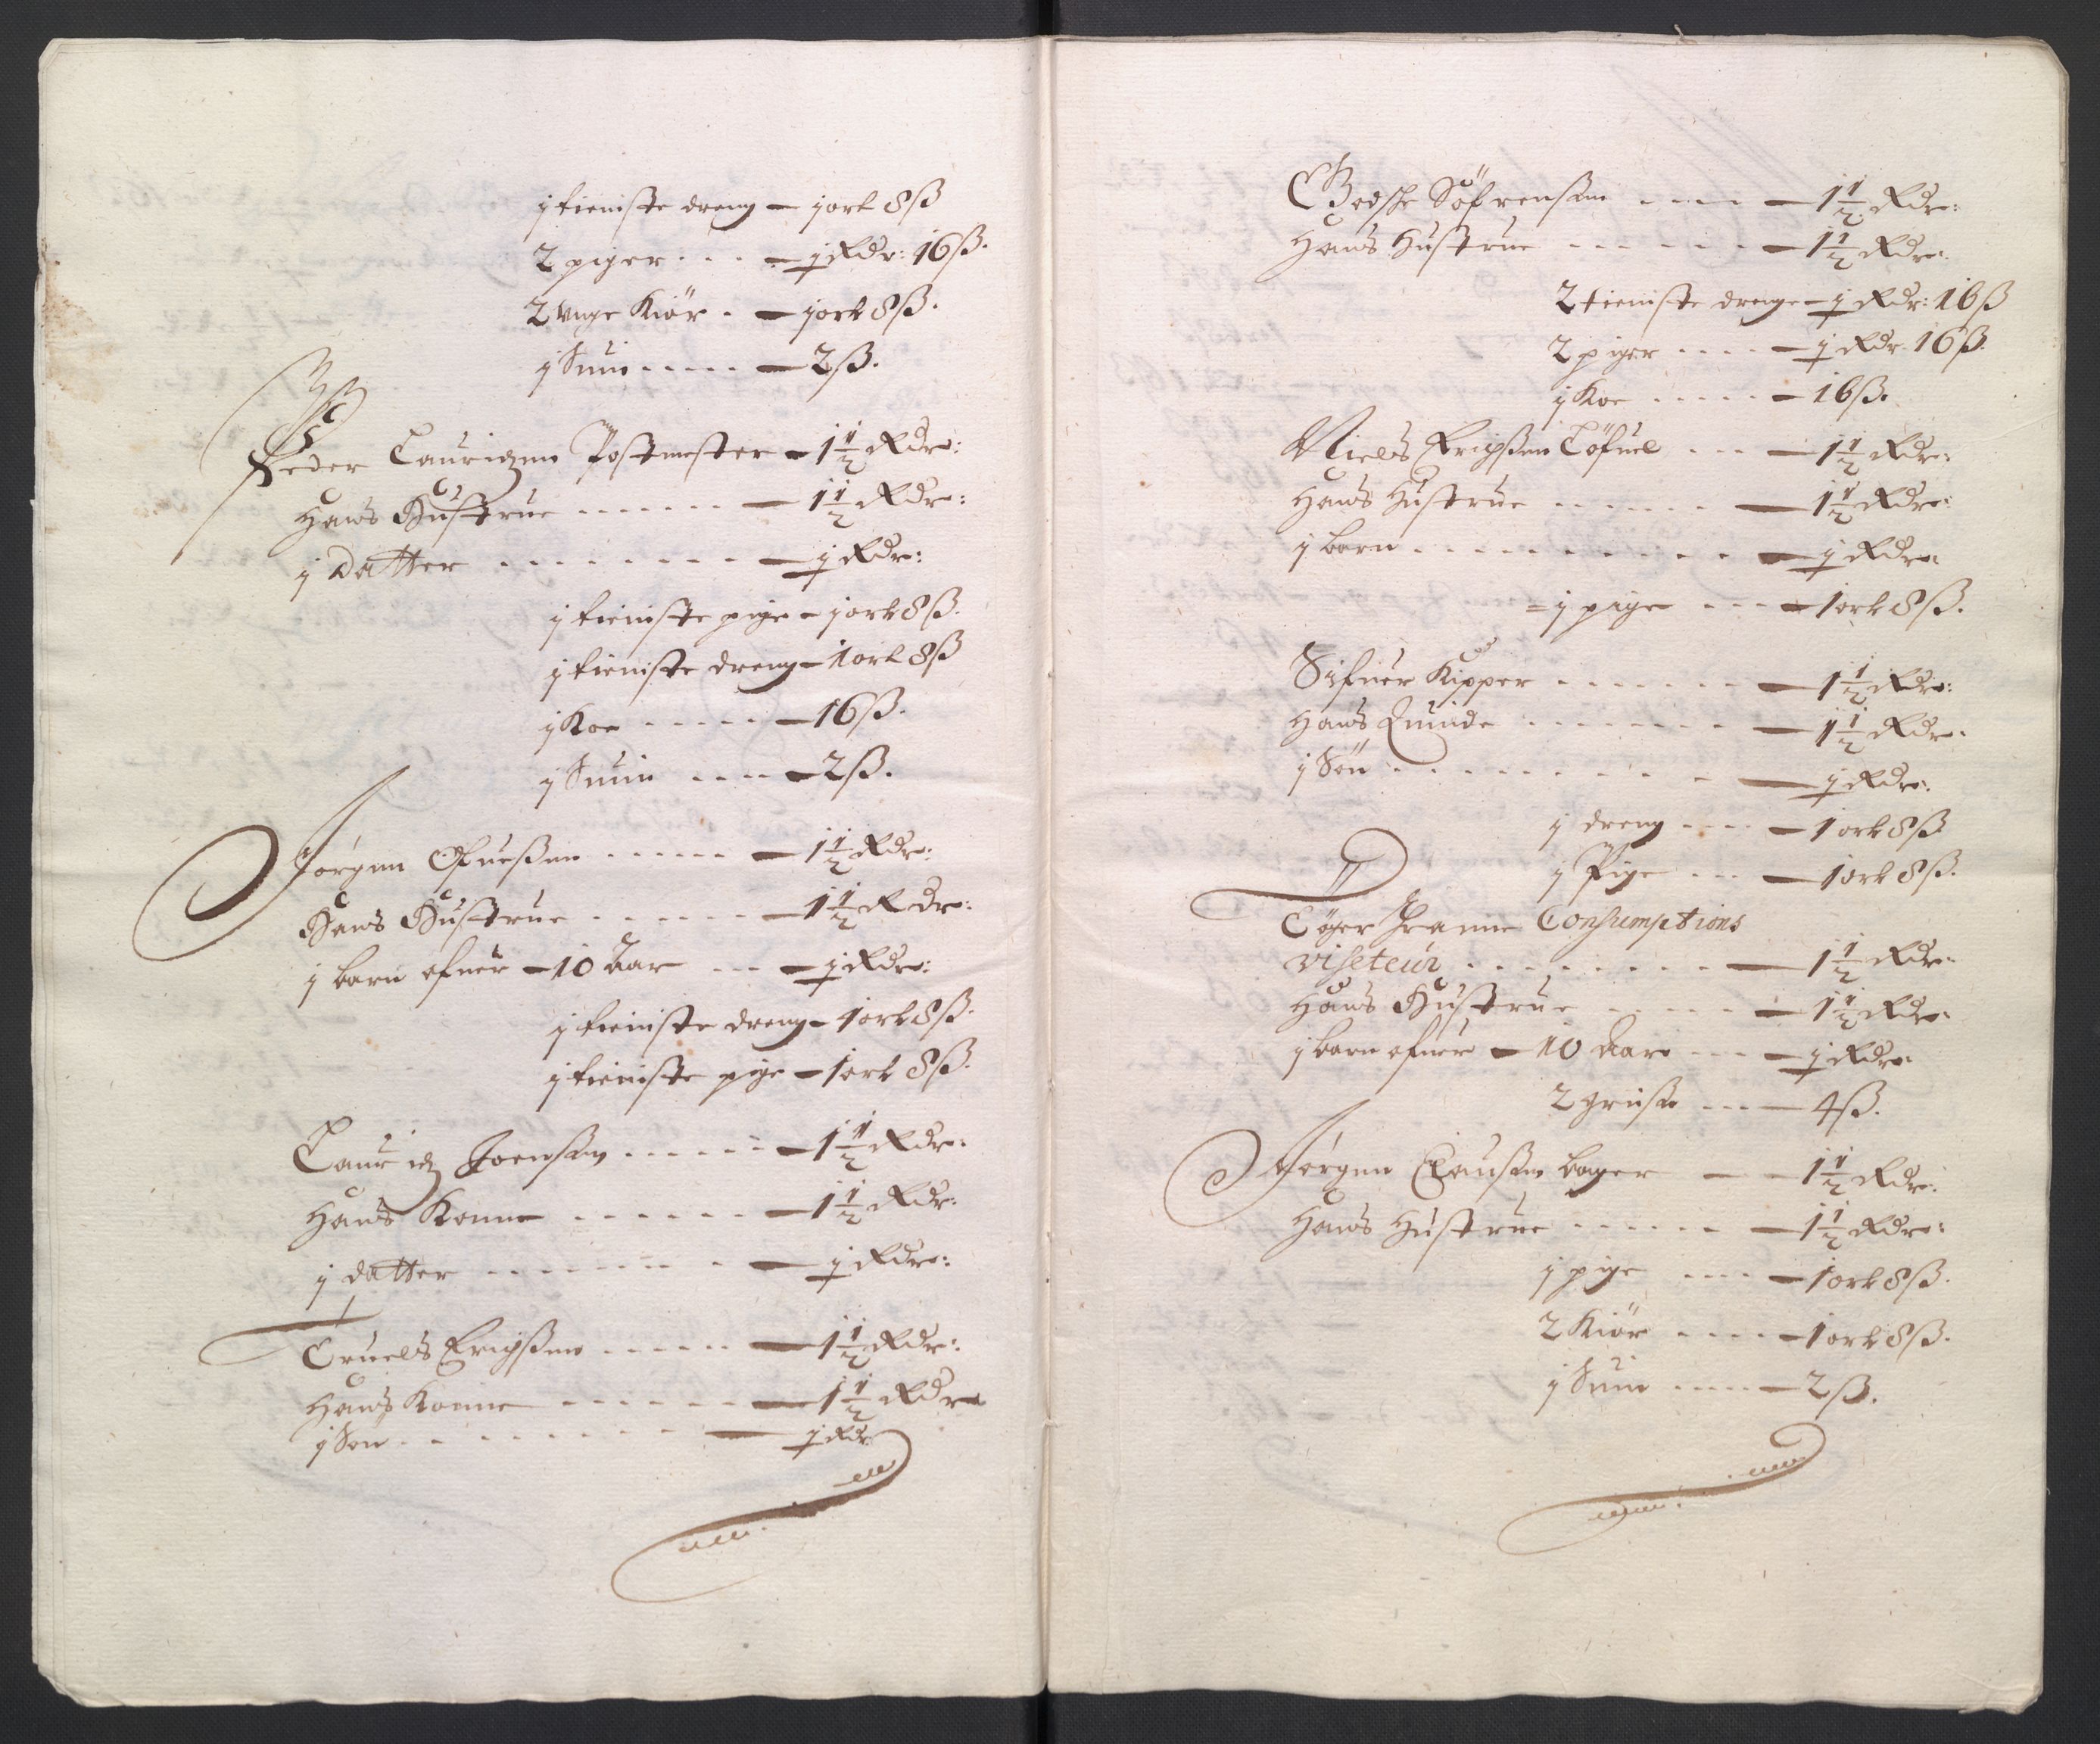 j tieniste dreng – j ort 8 ß
2 piger . . . – j Rdr: 16 ß.
2 unge Kiör . – j ort 8 ß.
j Suin . . . . . – 2 ß.
Peder Lauridzen Postmester – 1 1/2 Rdr:
Hans Hustrue . . . . . . . – 1 1/2 Rdr:
j datter . . . . . . . . – j Rdr:
j tieniste pige – j ort 8 ß.
j tieniste dreng – 1 ort 8 ß
j Koe . . . . . – 16 ß.
j Suin . . . . – 2 ß.
Jörgen Ofuessen . . . . . – 1 1/2 Rdr:
Hans Hustrue . . . . . . – 1 1/2 Rdr:
j barn ofuer – 10 Aar . . . – j Rdr:
j tieniste dreng – 1 ort 8 ß.
j tieniste pige – 1 ort 8 ß.
Lauridz Joensen . . . . . . – 1 1/2 Rdr:
Hans Konne . . . . . . – 1 1/2 Rdr:
j datter . . . . . . . . – j Rdr:
Truels Erichssen . . . . . . – 1 1/2 Rdr:
Hans Konne . . . . . . – 1 1/2 Rdr
j Sön . . . . . . . . – j Rdr
Godsche Söfrensen . . . . – 1 1/2 Rdr:
Hans Hustrue . . . . . . – 1 1/2 Rdr:
2 tieniste drenge – j Rdr: 16 ß
2 piger . . . . – j Rdr. 16 ß.
j Koe . . . . . – 16 ß.
Niels Erichssen Töfuel . . . – 1 1/2 Rdr:
Hans Hustrue . . . . . . – 1 1/2 Rdr:
j barn . . . . . . . . . . – j Rdr:
= j pige . . . – 1 ort 8 ß.
Sifuer Kipper . . . . . . . – 1 1/2 Rdr:
Hans Quinde . . . . . . . – 1 1/2 Rdr.
j Sön . . . . . . . . – j Rdr:
j dreng . . . . – 1 ort 8 ß
j Pige . . . – 1 ort 8 ß.
Töger Consumptions
viseteur . . . . . . . . – 1 1/2 Rdr:
Hans Hustrue . . . . . – 1 1/2 Rdr.
j barn ofuer – 10 Aar . . . – j Rdr:
2 griise . . . – 4 ß.
Jörgen Clausen bager – – 1 1/2 Rdr:
Hans Hustrue . . . . . . – 1 1/2 Rdr:
j pige . . . . – 1 ort 8 ß.
2 Kiör . . . . – 1 ort 8 ß.
j Suin . . . . – 2 ß.